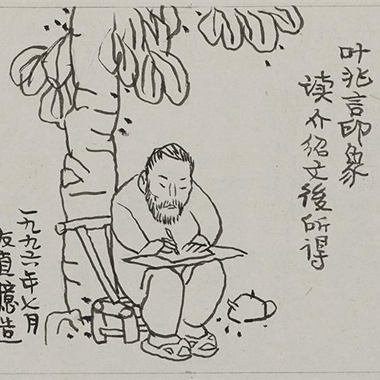 叶兆言印象
读介绍文後所得
一九九六年七月
友直臆造